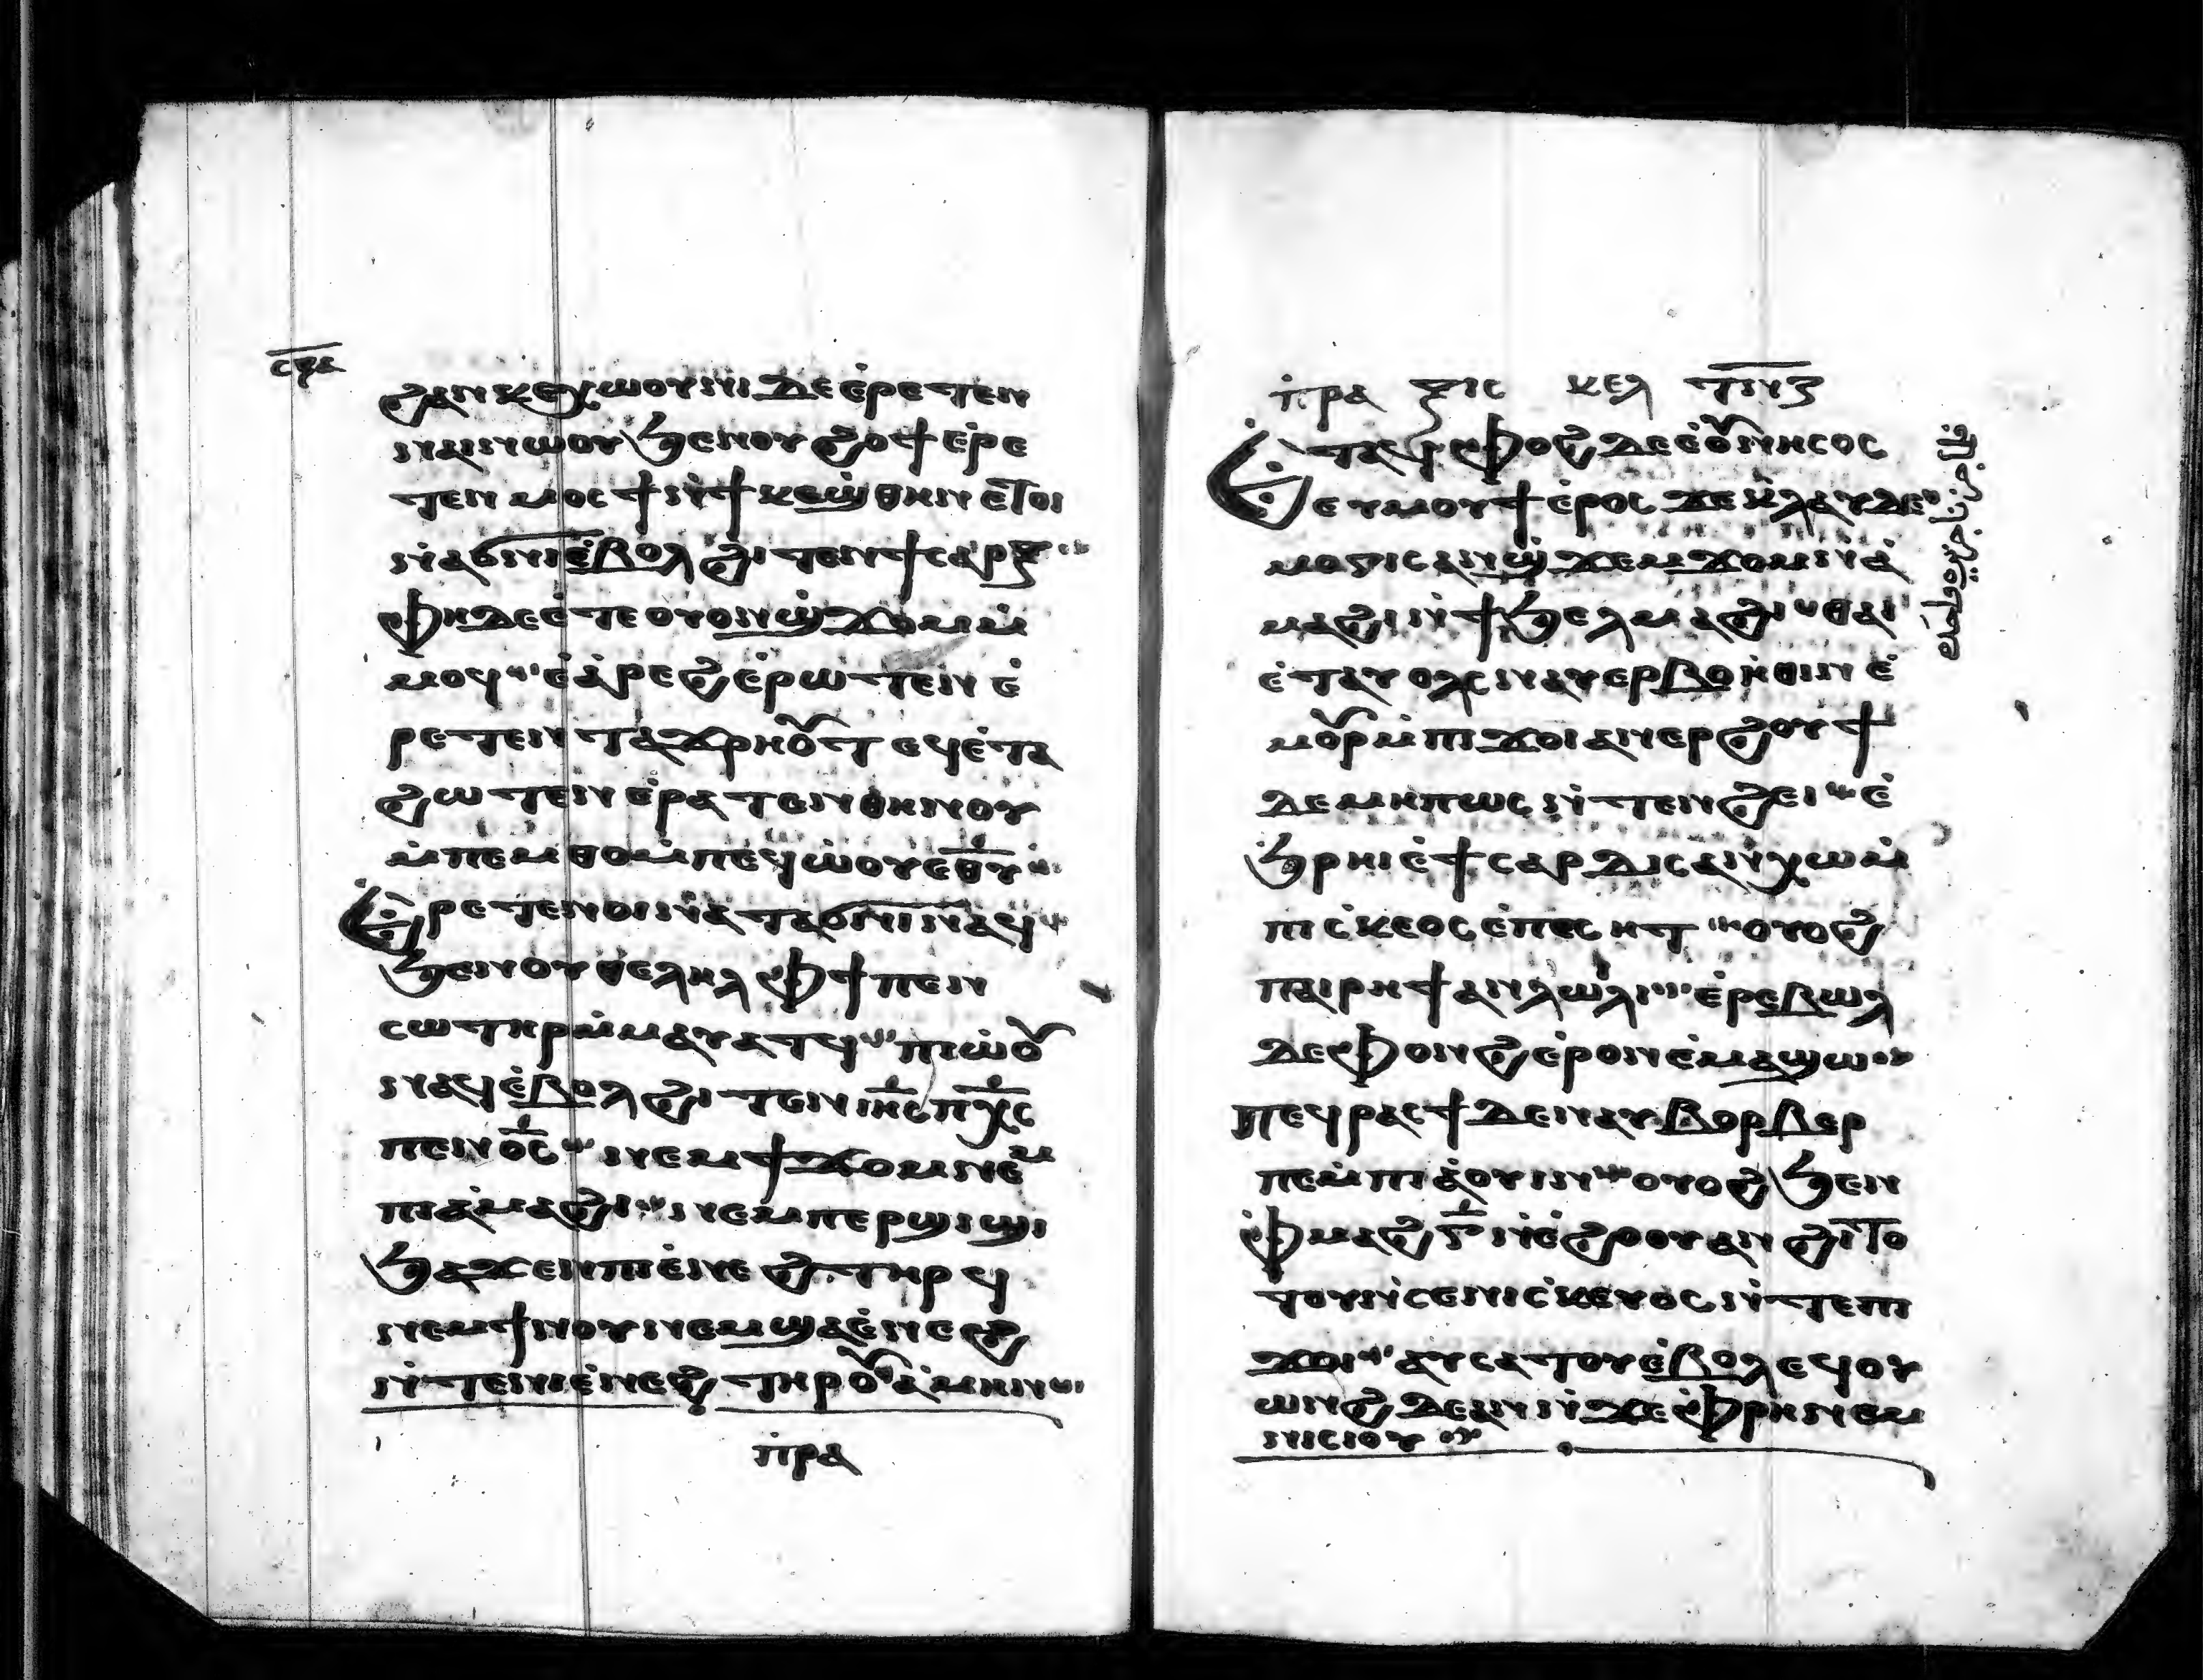 ⲥϥⲁ
ϩⲁⲛⲕⲉⲭⲱⲟⲩⲛⲓ ⲇⲉ ⲉ̇ⲣⲉⲧⲉⲛ
ⲛⲁⲛⲱⲟⲩ ϧⲉⲛⲟⲩϩⲟϯ ⲉ̇ⲣⲉ
ⲧⲉⲛⲙⲟⲥϯ ⲛ̇ϯⲕⲉϣ̇ⲑⲏⲛ ⲉ̇ⲧⲟⲓ
ⲛ̇ⲁϭⲛⲓ ⲉ̇ⲃⲟⲗ ϩⲓⲧⲉⲛ ϯⲥⲁⲣⲝ
ⲫⲏ ⲇⲉ ⲉ̇ⲧⲉ ⲟⲩⲟⲛϣ̇ϫⲟⲙ ⲙ̇
ⲙⲟϥ ⲉ̇ⲁ̇ⲣⲉϩ ⲉ̇ⲣⲱⲧⲉⲛ ⲉ̇
ⲣⲉⲧⲉⲛⲧⲁϫⲣⲏⲟⲩⲧ ⲉϥⲉ̇ⲧⲁ
ϩⲱⲧⲉⲛ ⲉ̇ⲣⲁⲧⲉⲛⲑⲏⲛⲟⲩ
ⲙ̇ⲡⲉⲙⲑⲟ ⲙ̇ⲡⲉϥⲱ̇ⲟⲩ ⲉⲑⲩ
ⲉ̇ⲣⲉⲧⲉⲛⲟⲓ ⲛ̇ⲁⲧⲁϭⲛⲓ ⲛⲁϥ
ϧⲉⲛⲟⲩⲑⲉⲗⲏⲗ ⲫϯ ⲡⲉⲛ
ⲥⲱⲧⲏⲣ ⲙ̇ⲙⲁⲩⲁⲧϥ ⲡⲓⲱ̇ⲟⲩ
ⲛⲁϥ ⲉ̇ⲃⲟⲗ ϩⲓⲧⲉⲛ ⲓⲏⲥ ⲡⲭⲥ
ⲡⲉⲛⲟ̅ⲥ̅ ⲛⲉⲙ ϯϫⲟⲙ ⲛⲉⲙ
ⲡⲓⲁ̇ⲙⲁϩⲓ ⲛⲉⲙ ⲡⲉⲣϣⲓϣⲓ
ϧⲁϫⲉⲛ ⲡⲓⲉ̇ⲛⲉϩ ⲧⲏⲣϥ
ⲛⲉⲙ ϯⲛⲟⲩ ⲛⲉⲙ ϣⲁⲉ̇ⲛⲉϩ
ⲛ̇ⲧⲉⲛⲓⲉ̇ⲛⲉϩ ⲧⲏⲣⲟⲩ ⲁ̇ⲙⲏⲛ
ⲡ̇ⲣⲁ
ⲡ̇ⲣⲁ ⲝⲓⲥ ⲕⲉⲗ
ⲉ̇ⲧⲁϥⲫⲟϩ ⲇⲉ ⲉ̇ⲟⲩⲛⲏⲥⲟⲥ
ⲉⲩⲙⲟⲩϯ ⲉ̇ⲣⲟⲥ ϫⲉ ⲕ̇ⲗⲁⲩⲇⲉ
ⲙⲟⲅⲓⲥ ⲁⲛϣ̇ϫⲉⲙϫⲟⲙ ⲛ̇ⲁ̇
ⲙⲁϩⲓ ⲛ̇ϯϧⲉⲗⲙⲁϩⲓ ⲑⲁⲓ
ⲉ̇ⲧⲁⲩⲟⲗⲥ ⲛⲁⲩⲉⲣⲃⲟⲏ̇ⲑⲓⲛ ⲉ̇
ⲙⲟⲩⲣ ⲙ̇ⲡⲓϫⲟⲓ ⲁⲛⲉⲣϩⲟⲩϯ
ⲇⲉ ⲙⲏⲡⲱⲥ ⲛ̇ⲧⲉⲛϩⲉⲓ ⲉ̇
ϧⲣⲏⲓ ⲉ̇ϯⲥⲁⲣⲇⲓⲥ ⲁⲛⲭⲱ ⲙ̇
ⲡⲓⲥ̇ⲕⲉⲟⲥ ⲉ̇ⲡⲉⲥⲏⲧ ⲟⲩⲟϩ
ⲡⲁⲓⲣⲏϯ ⲁⲛⲗⲱⲗⲓ ⲉ̇ⲣⲉⲃⲱⲗ
ⲇⲉ ⲫⲟⲛϩ ⲉ̇ⲣⲟⲛ ⲉ̇ⲙⲁϣⲱ
ⲡⲉϥⲣⲁⲥϯ ⲇⲉ ⲛⲁⲩⲃⲟⲣⲃⲉⲣ
ⲡⲉ ⲙ̇ⲡⲓⲁ̇ⲟⲩⲓⲛ ⲟⲩⲟϩ ϧⲉⲛ
ⲫ̇ⲙⲁϩ ⲅ̅ ⲛ̇ⲉ̇ϩⲟⲟⲩ ⲁⲛϩⲓⲧⲟ
ⲧⲟⲩ ⲛ̇ⲥⲉⲛⲓⲥ̇ⲕⲉⲩⲟⲥ ⲛ̇ⲧⲉⲡⲓ
ϫⲟⲓ ⲁⲩⲥⲁⲧⲟⲩ ⲉ̇ⲃⲟⲗ ⲉϥⲟⲩ
ⲱⲛϩ ⲇⲉ ⲁⲛ ⲛ̇ϫⲉ ⲫ̇ⲣⲏ ⲛⲉⲙ
ⲛⲓⲥⲓⲟⲩ